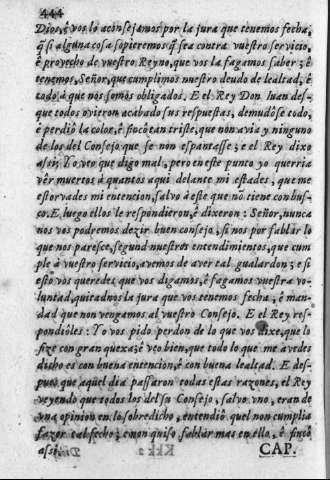 444
Dios, è vos lo aconsejamos por la jura que tenemos fecha,
q̃ si alguna cosa sopieremos q̃ sea contra vuestro servicio,
è provecho de vuestro Reyno, que vos la fagamos saber; è
tenemos, Señor, que cumplimos nuestro deudo de lealtad, è
todo à que nos somos obligados. E el Rey Don Iuan des-
que todos ovieron acabado sus respuestas, demudòse todo,
è perdiò la color, è fincò tan triste, que non avia y ninguno
de los del Consejo que se non espantasse; e el Rey dixo
assi: Yo veo que digo mal, pero en este punto yo querria
vèr muertos à quantos aqui delante mi estades, que me
estorvades mi entencion, salvo à este que nò tiene con bus-
co. E luego ellos le respondieron, è dixeron: Señor, nunca
nos vos podremos dezir buen consejo, si nos por fablar lo
que nos paresce, segund nuestros entendimientos, que cum
ple à vuestro servicio, avemos de aver tal gualardon; e si
esto vos queredes que vos digamos, è fagamos vuestra vo-
luntad, quitadnos la jura que vos tenemos fecha, è man-
dad que non vengamos al vuestro Consejo. E el Rey res-
pondiòles: Yo vos pido perdon de lo que vos dixe, que lo
fize con gran quexa; è veo bien, que todo lo que me avedes
dicho es con buena entencion, è con buena lealtad. E des-
pues que aquel dia passaron todas estas razones, el Rey
veyendo que todos los del su Consejo, salvo vno, eran de
vna opinion en lo sobredicho, entendiò quel non cumplia
fazer tal fecho; e non quiso fablar mas en ello, è fincò
assi.
CAP.